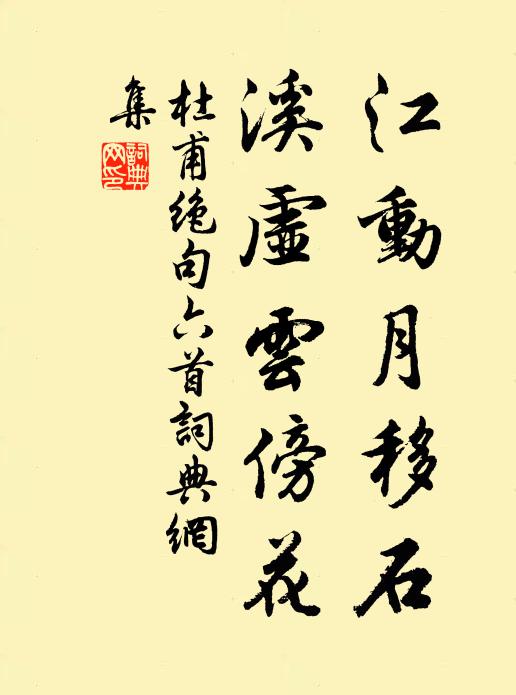 江動月移石
溪虛雲傍花
杜甫絶句六首詞典網
集
詞典網印